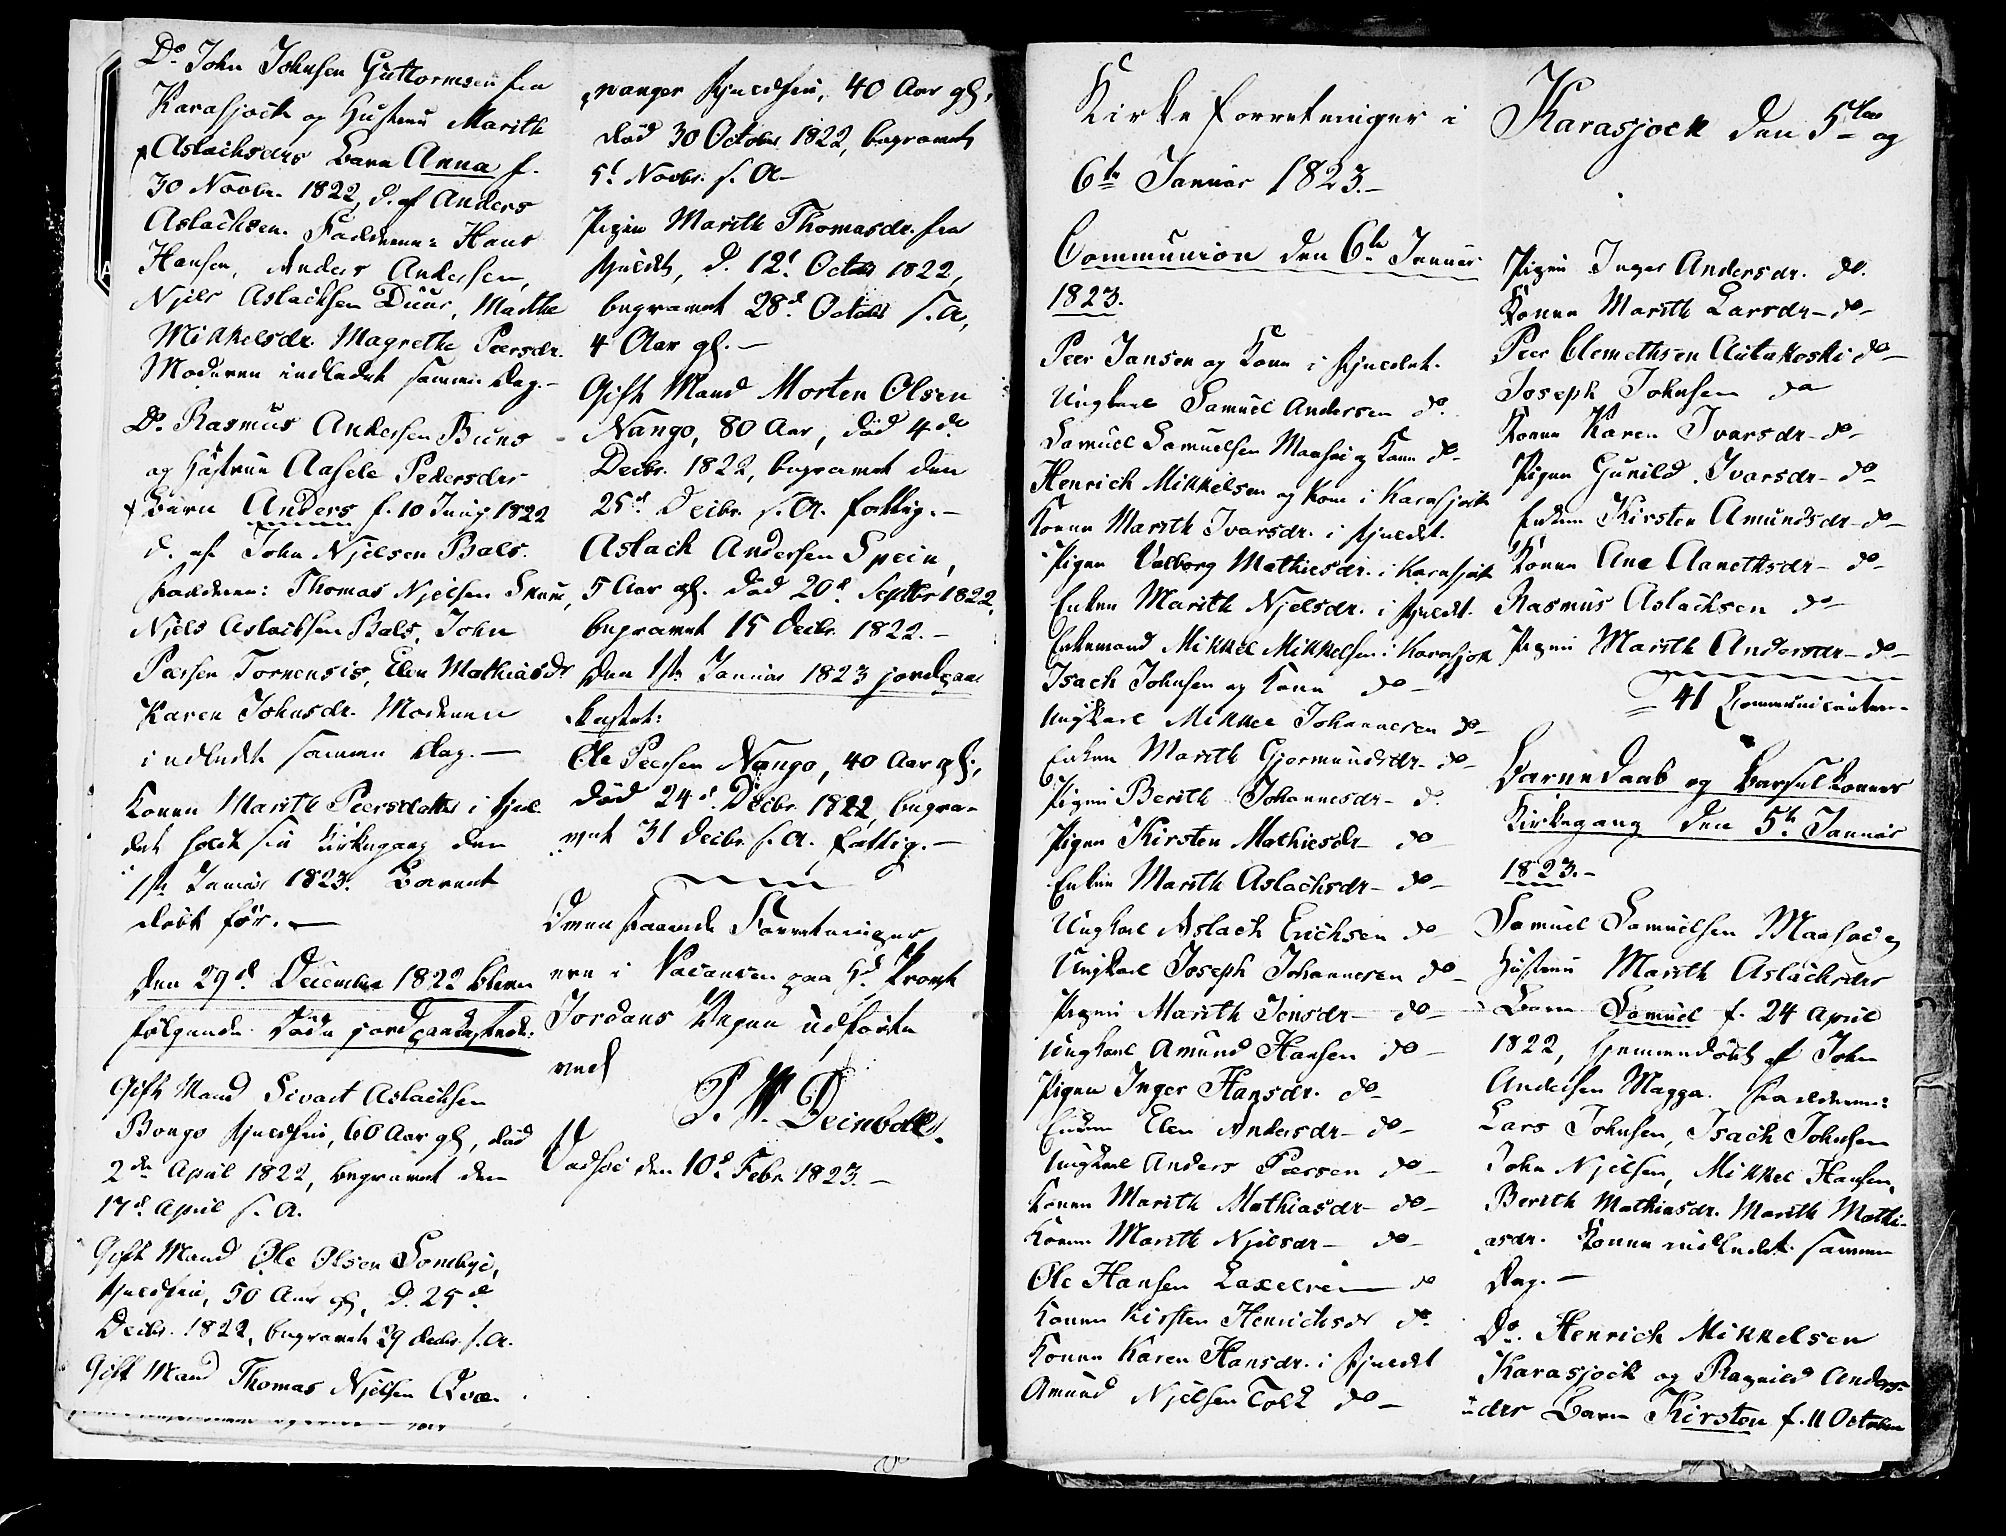 Do John Johnsen Guttormsen fra
Karasjock og Hustrue Marith
Aslachsdrs Barn Anna f.
30 Novbr. 1822, d. af Anders
Aslachsen. Fadderne: Hans
Hansen, Anders Andersen,
Njels Aslachsen Duur, Marthe
Mikkelsdr. Magrethe Peersdr.
Moderen indledet samme Dag. –
Do Rasmus Andersen Buns
og Hustrue Aasele Pedersdrs
Barn Anders f. 10 Junij 1822
d. af John Njelsen Bals.
Fadderne: Thomas Njelsen
Njels Aslachsen Bals, John
Peersen Tornensis, Elen Mathiasdr
Karen Johnsdr. Moderen
indledet samme Dag. –
Konen Marith Peersdatter i Fjel-
det holdt sin Kirkegang den
1ste Januar 1823. Barnet
døbt før. –
Den 29de December 1822 bleve
følgende Døde jordpaakastede:
Gift Mand Sivart Aslachsen
Bongo Fjeldfin, 60 Aar gl, død
2den April 1822, begravet den
17de April s. A.
Gift Mand Ole Olsen Sombye,
Fjeldfin, 50 Aar gl, d. 25de
Decbr. 1822, begravet 29 Decbr. s. A.
Gift Mand Thomas Njelsen Qvæ-
nvanger Fjeldfin, 40 Aar gl,
død 30 October 1822, begravet
5t Novbr. s. A –
Pigen Marith Thomasdr. fra
Fjeldet, d. 12t Octobr 1822,
begravet 28de Octobr s. A,
4 Aar gl. –
Gift Mand Morten Olsen
Nango, 80 Aar, død 4de
Decbr. 1822, begravet den
25de Decbr. s. A. fattig. –
Aslach Andersen Spein,
5 Aar gl. død 20de Septbr 1822,
begravet 15 Decbr. 1822. –
Den 1ste Januar 1823 jordpaa-
kastet:
Ole Peersen Nango, 40 Aar gl.,
død 24de Decbr 1822, begra-
vet 31 Decbr. s. A. fattig. –
Forretninger
ere i Vacancen paa Hr. Provst
Jordans Vegne udførte
ved
P. W. Deinboll.
Vadsøe den 10de Febr. 1823. –
Kirkeforretninger i Karasjock den 5te og
6te Januar 1823. –
Communion den 6te Januar
1823.
Peer Jansen og Kone i Fjeldet.
Ungkarl Samuel Andersen do.
Samuel Samuelsen Maasøe og Kone do –
Henrich Mikkelsen og Kone i Karasjock
Konen Marith Ivarsdr. i Fjeldet.
Pigen Valborg Mathiesdr. i Karasjock
Enken Marith Njelsdr. i Fjeldet.
Enkemand Mikkel Mikkelsen i Karasjok
Isach Johnsen og Kone do –
Ungkarl Mikkel Johannesen do –
Enken Marith Gjormundsdr – do –
Pigen Berith Johannesdr – do
Pigen Kirsten Mathiesdr – do
Enken Marith Aslachsdr – do –
Ungkarl Aslach Erichsen do –
Ungkarl Joseph Johannesen do –
Pigen Marith Jonsdr – do –
Ungkarl Amund Hansen do –
Pigen Inger Hansdr. do –
Enken Elen Andersdr – do –
Ungkarl Anders Peersen do –
Konen Marith Mathiasdr – do –
Konen Marith Njelsdr – do –
Ole Hansen Laxelven do
Konen Kirsten Henrichsdr do
Konen Karen Hansdr. i Fjeldet
Amund Njelsen Tolk do –
Pigen Inger Andersdr. do.
Konen Marith Larsdr – do –
Peer Clemethsen Autakoski do –
Joseph Johnsen do
Konen Karen Ivarsdr – do –
Pigen Gunild Ivarsdr – do
Enken Kirsten Amundsdr – do –
Konen Ane Anethsdr – do –
Rasmus Aslachsen do –
Pigen Marith Andersdr – do –
41 Communicantere –
Barnedaab og Barselkoners
Kirkegang den 5te Januar
1823. –
Samuel Samuelsen Maasøe og
Hustrue Marith Aslachsdrs
Barn Samuel f. 24 April
1822, hjemmedøbt af John
Andersen Magga. Fadderne:
Lars Johnsen, Isach Johnsen
John Njelsen, Mikkel Hansen,
Berith Mathiasdr. Marith Mathi-
asdr. Konen indledet samme
Dag. –
Do. Henrich Mikkelsen
Karasjock og Ragnild Anders-
drs Barn Kirsten f. 11 October